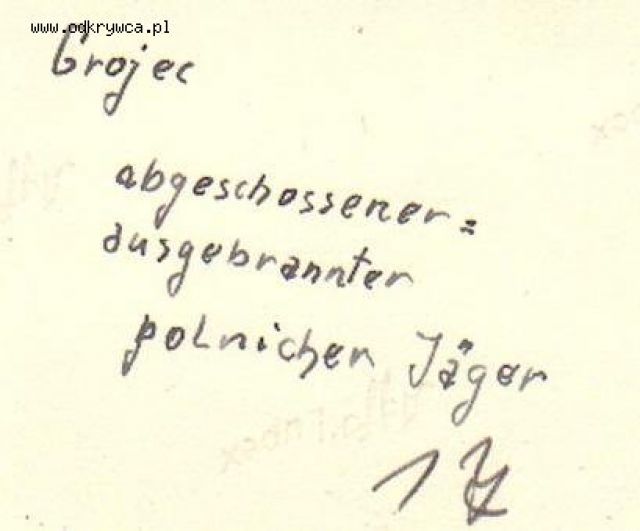 www.odkrywca.pl
Grojec
abgeschossener =
ausgebrannter
polnicher Jäger
17